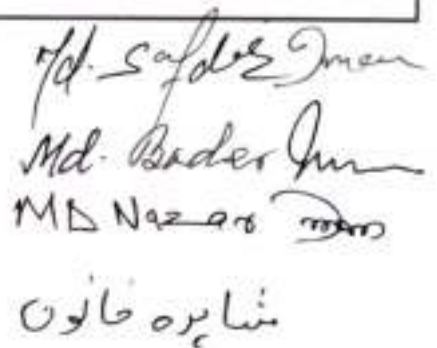 Md. Safdar Imam
Md. Bader Imam
MD Nazar Imam
شابره خاتون